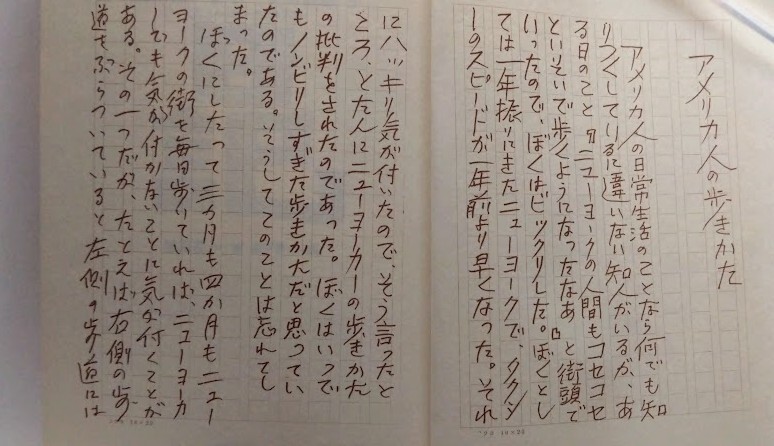 アメリカ人の歩きかた
アメリカ人の日常生活のことなら何でも知
りつくしているに違いない知人がいるが、あ
る日のこと〝ニューヨークの人間もコセコセ
といそいで歩くようになったなあ〟と街頭で
いったので、ぼくはビックリした。ぼくとし
ては一年振りにきたニューヨークで、タクシ
ーのスピードが一年前より早くなった。それ
にハッキリ気が付いたので、そう言ったと
ころ、とたんにニューヨーカーの歩きかた
の批判をされたのであった。ぼくはいつで
もノンビリしすぎた歩きかただと思ってい
たのである。そうしてこのことは忘れてし
まった。
ぼくにしたって三カ月も四か月もニュー
ヨークの街を毎日歩いていれば、ニューヨーカ
ーでも気が付かないことに気が付くことが
ある。その一つだが、たとえば右側の歩
道をぶらついていると左側の歩道には